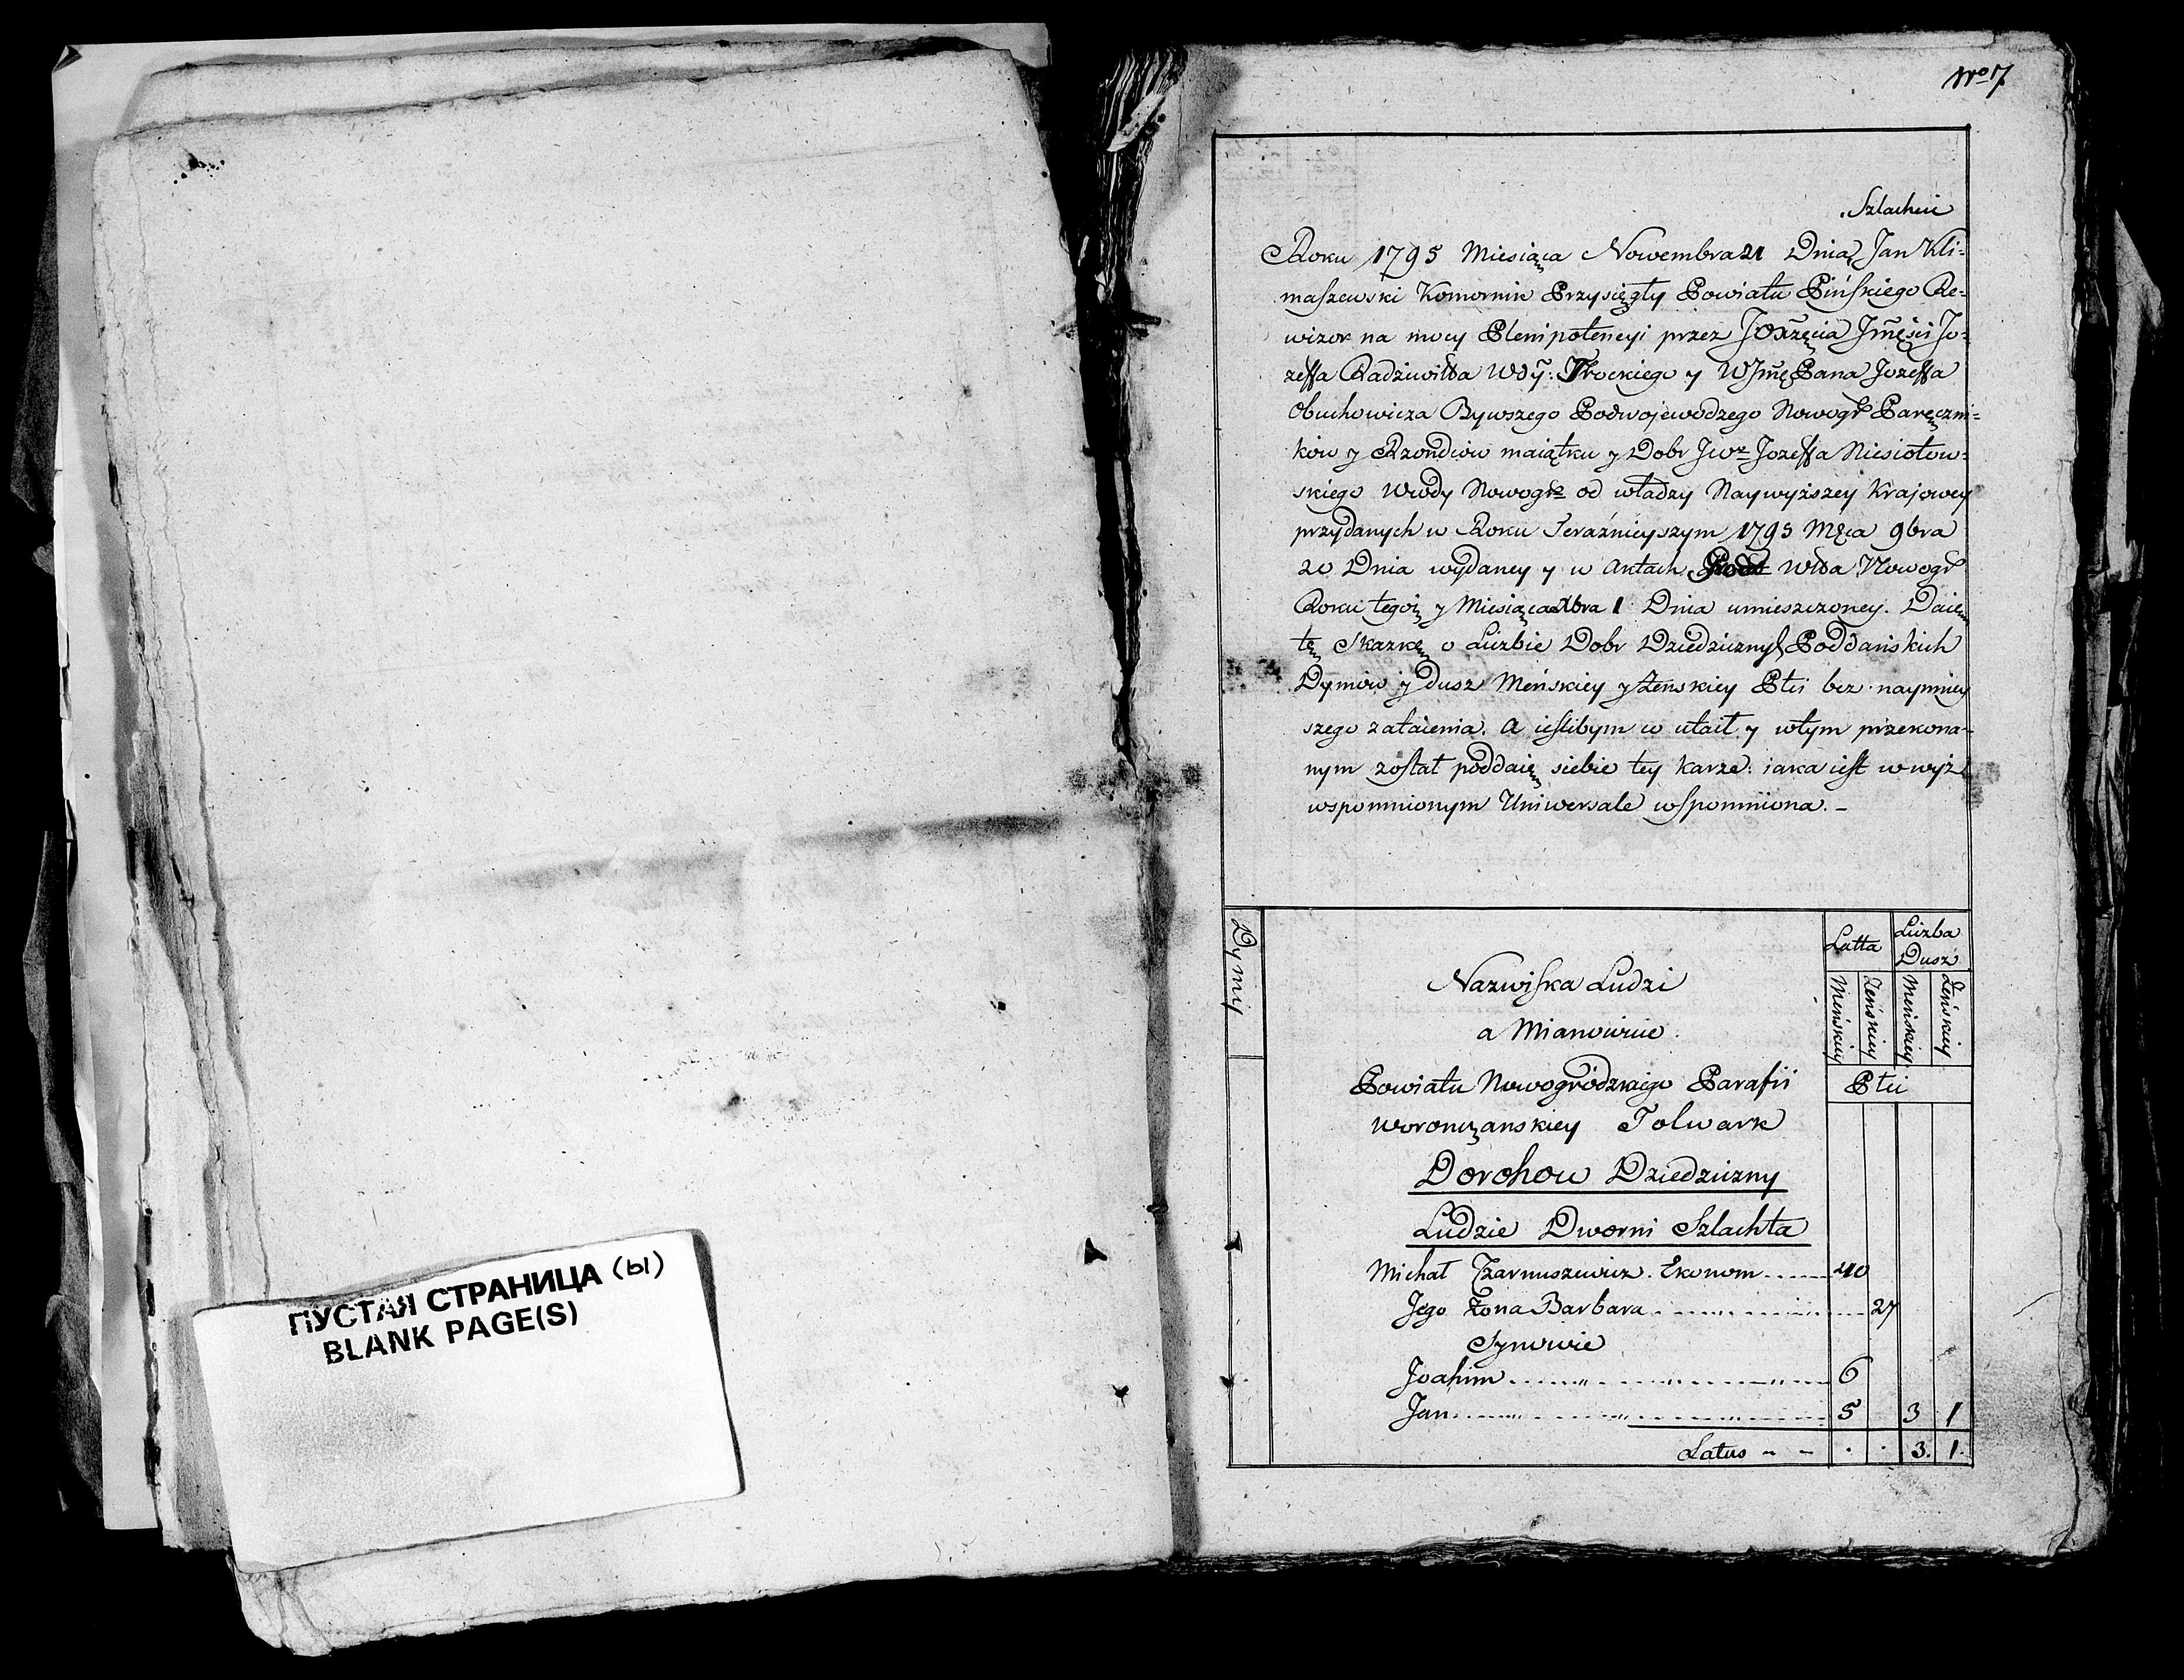 ПУСТАЯ СТРАНИЦА (ы)
BLANK PAGE(S)
No 7
Szlachcic
Roku 1795 Miesiąca Nowembra 21 Dnia Jan Kli=
maszewski Komornik Przysięgły Powiatu Pińskiego Re=
wizor na mocy Plenipotencyi przez JOXzęcia Jmęści Jo=
zeffa Radziwiłła Wdy: Trockiego y WJmę Pana Jozeffa
Obuchowicza Bywszego Podwojewodzego Nowogr Paręczni=
kow y Rzondcow maiątku y Dobr Jwo Jozeffa Niesiołow=
skiego Wwdy Nowogro od władzy Naywyższey Krajowey
przydanych w Roku Teraźnieyszym 1795 Męca 9bra
20 Dnia wydaney y w Aktach Wda Nowogr
Roku tegoż y Miesiąca Xbra 1 Dnia umieszczoney. Daię
tę Skazkę o Liczbie Dobr Dziedzicznych Poddańskich
Dymow y Dusz Męńskiey y Żenskiey Płci bez naymniey
szego zataienia. A ieślibym co utaił y wtym przekona=
nym został poddaię siebie tey karze: iaka iest w wyż
wspomnionym Uniwersale wspomniona. –
Dymy
Nazwiska Ludzi
a Mianowicie.
Latta
Liczba
Dusz
Męńskiey
Żeńskiey
Męńskiey
Żeńskiey
Płci
Powiatu Nowogródzkiego Parafii
Woronczanskiey Folwark
Dorohow Dziedziczny
Ludzie Dworni Szlachta
Michał Czarnuszewicz. Ekonom 40
Jego Żona Barbara 27
Synowie
Joahim 6
Jan 5 3 1
Latus - - . . 3. 1.